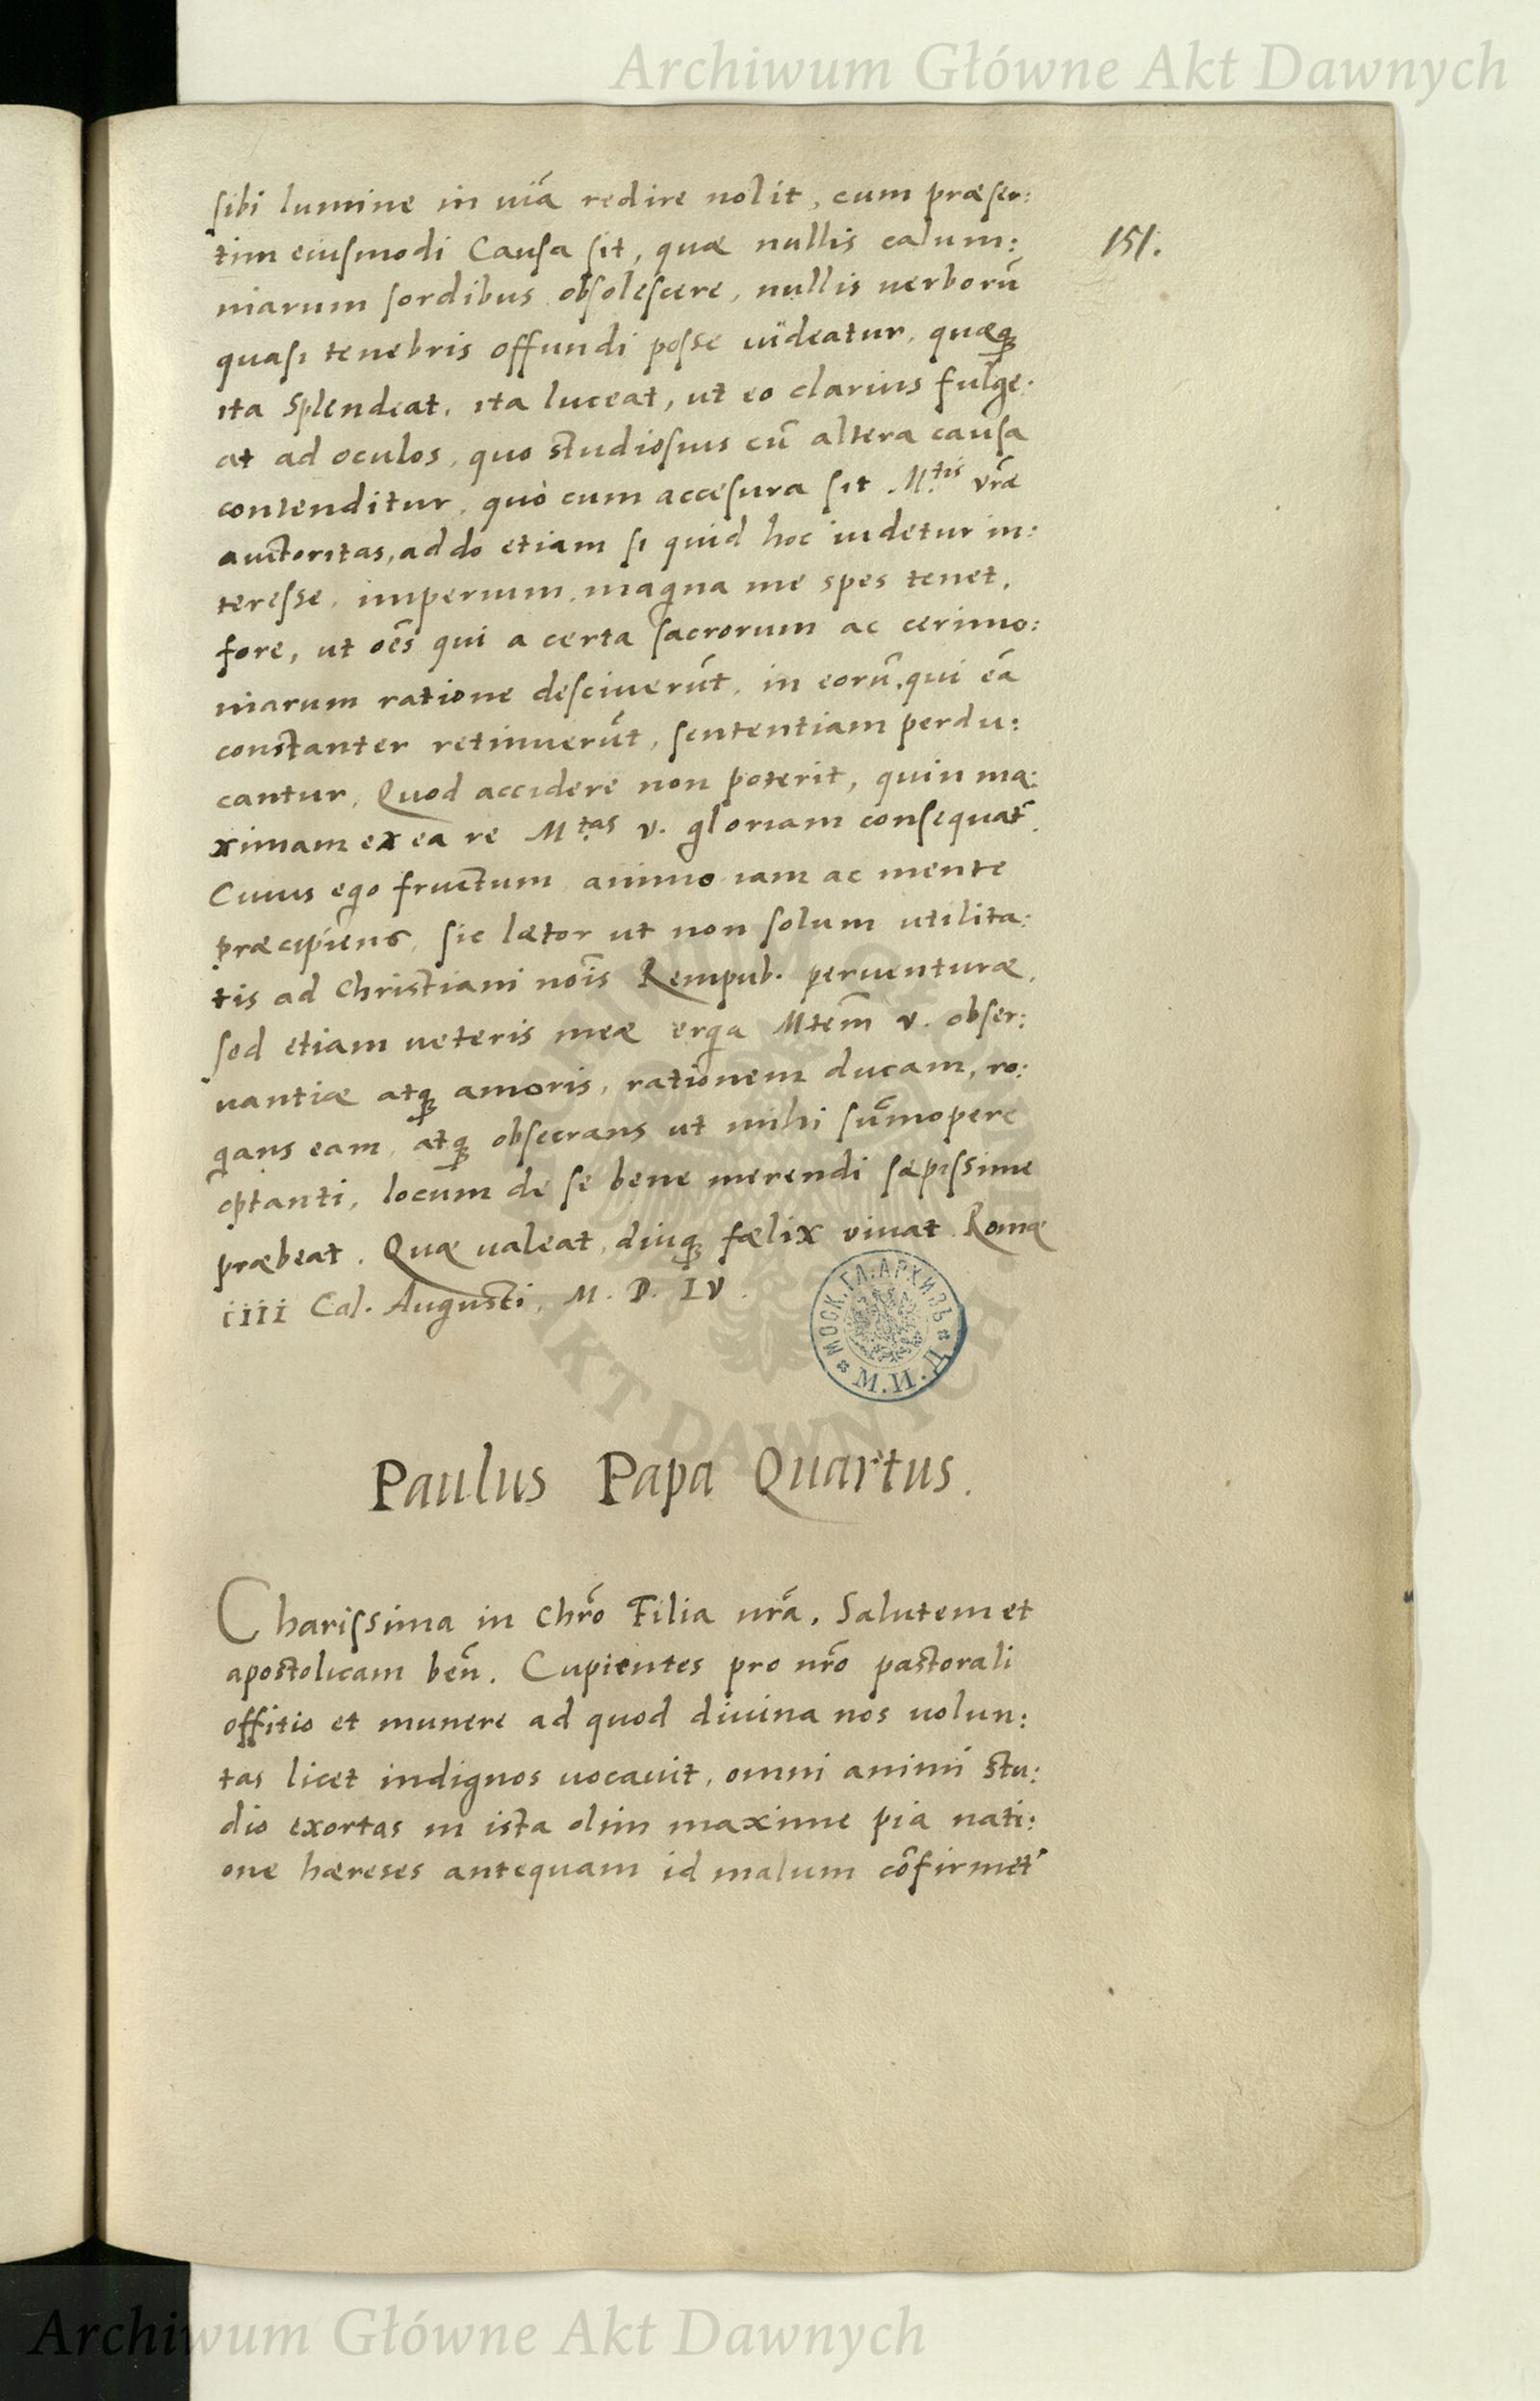 Archiwum Główne Akt Dawnych
sibi lumine in uiā redire nolit, cum præser:
tim eiusmodi Causa sit, quæ nullis calum:
niarum sordibus obsolescere, nullis uerborū
quasi tenebris offundi posse uideatur, quæq;
ita Splendeat, ita luceat, ut eo clarius fulge:
at ad oculos, quo studiosius cū altera causa
contenditur, quò cum accesura sit M.tis vr̄æ
auctoritas, addo etiam si quid hoc iudetur in:
teresse, imperium, magna me spes tenet,
fore, ut oēs qui a certa sacrorum ac cerimo:
niarum ratione desciuerūt, in eorū, qui eā
constanter retinuerūt, sententiam perdu:
cantur, Quod accidere non poterit, quin ma:
ximam ex ea re M.tas v. gloriam consequat̄.
Cuius ego fructum animo iam ac mente
præcipiens, sic lætor ut non solum utilita:
tis ad Christiani nōis Rempub. peruenturæ,
sed etiam ueteris meæ erga Mtem̄ v. obser:
uantiæ atq; amoris, rationem ducam, ro:
gans eam, atq; obsecrans ut mihi sūmopere
optanti, locum de se bene merendi sæpissime
præbeat. Quæ ualeat, diuq; fælix viuat. Romæ
iiii Cal. Augusti, M. D. LV.
151.
МОСК. ГЛ. АРХИВЪ
М. И. Д.
Paulus Papa Quartus.
Charissima in Chr̄o Filia nr̄a, Salutem et
apostolicam ben̄. Cupientes pro nr̄o pastorali
offitio et munere ad quod diuina nos uolun:
tas licet indignos uocauit, omni animi stu:
dio exortas in ista olim maxime pia nati:
one hæreses antequam id malum cōfirmet̄
AKT DAWNYCH
Archiwum Główne Akt Dawnych